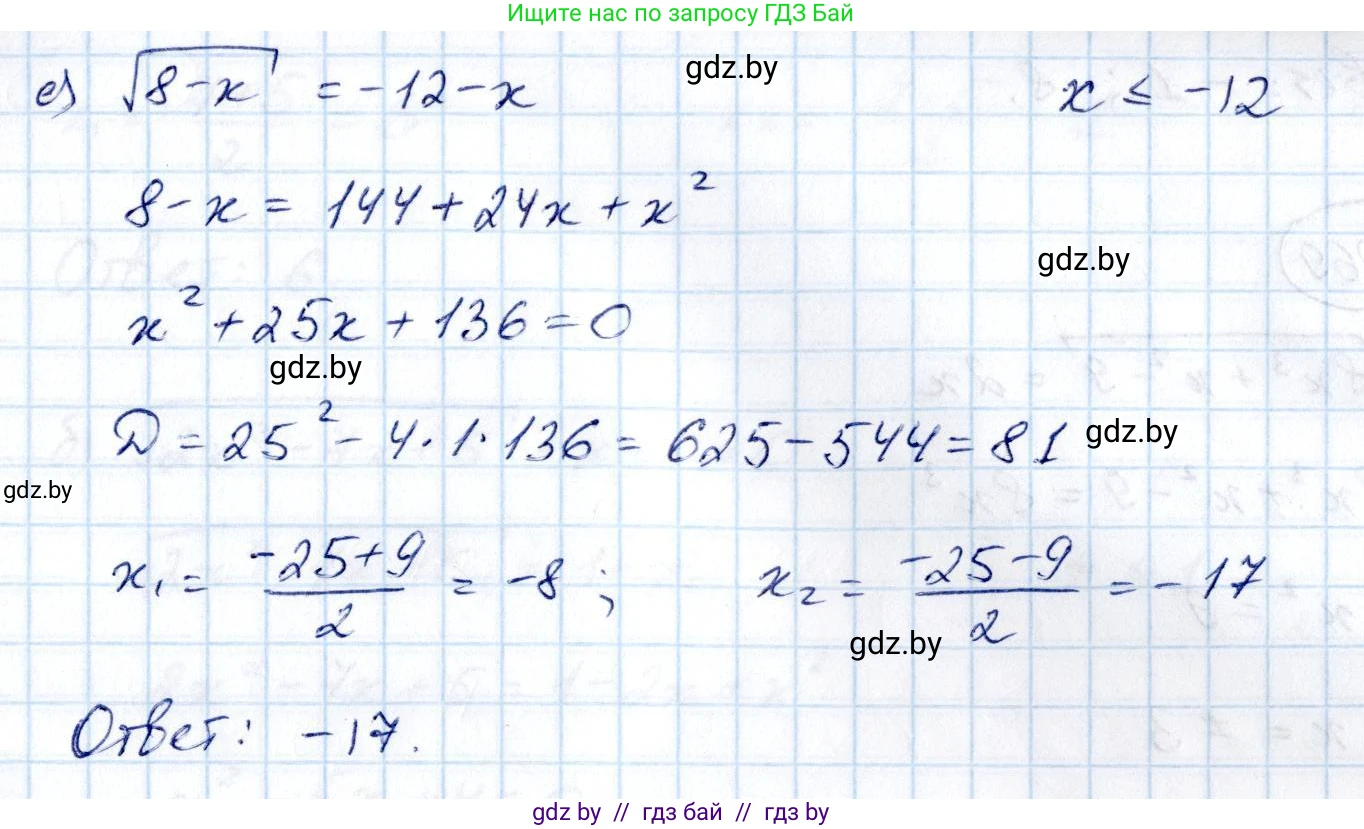 Ищите нас по запросу ГДЗ Бай
е) √(8-x) = -12-x gdz.by x ≤ -12
8-x = 144+24x+x²
gdz.by
x²+25x+136=0
gdz.by
D = 25²-4·1·136 = 625-544=81 gdz.by
gdz.by
x₁ = (-25+9)/2 = -8; x₂ = (-25-9)/2 = -17
gdz.by
Ответ: -17.
gdz.by // гдз бай // gdz.by